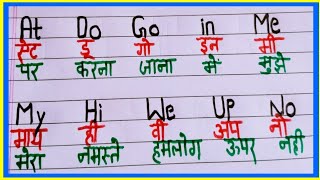 At Do Go in Me
स्ट डू गो इन मी
पर करना जाना में मुझे
My Hi We Up No
माय ही वी अप नौ
मेरा नमस्ते हमलोग ऊपर नही